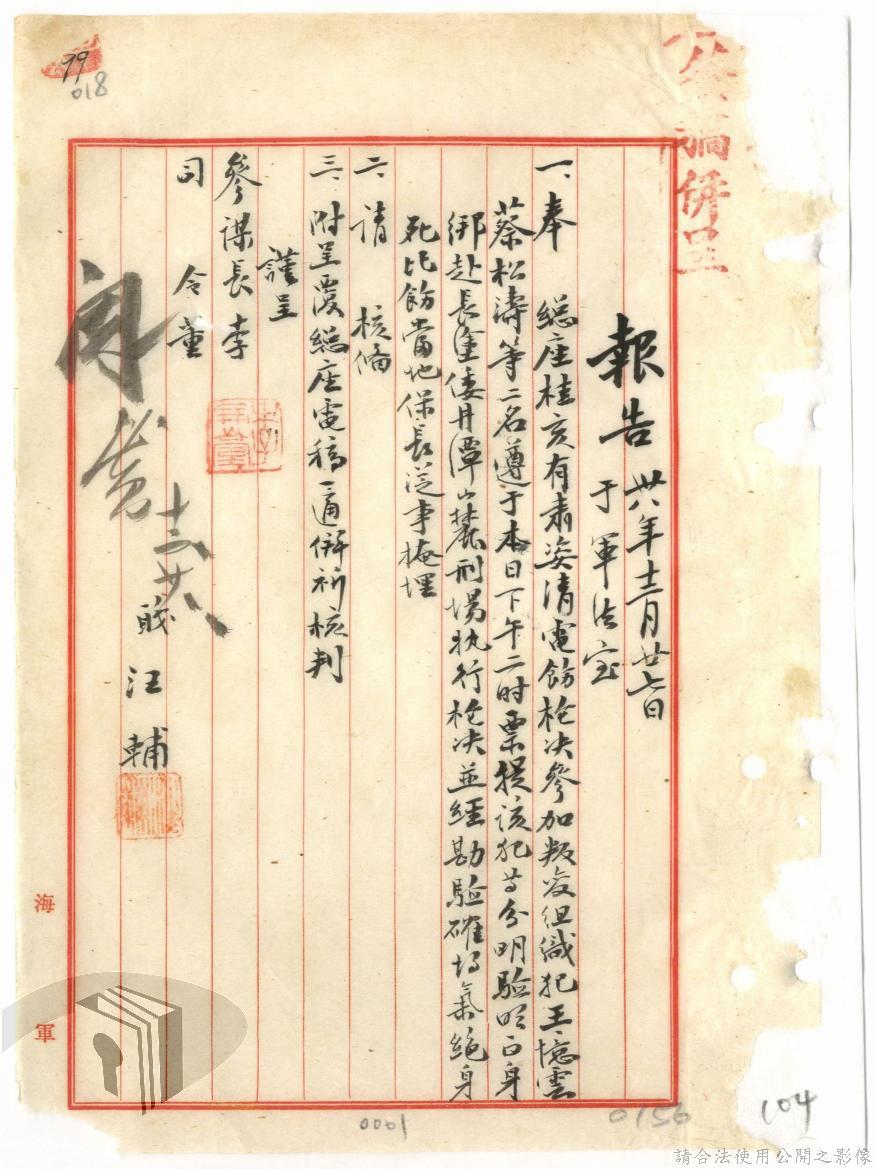 併呈
報告 卅八年十二月廿七日
于軍法室
一、奉 總座桂亥有肅姿清電飭槍决參加叛变組織犯王憶雲
蔡松濤等二名遵于本日下午二时票提该犯等分明驗明正身
綁赴長塗倭井潭山麓刑場执行槍决並经勘驗確均氣絕身
死比飭當地保長从事掩埋
二、请 核備
三、附呈覆總座電稿一通併祈核判
謹呈
參謀長李
司令董
閱
十二廿八
職 汪輔
海軍
99
018
0001
0156
104
請合法使用公開之影像